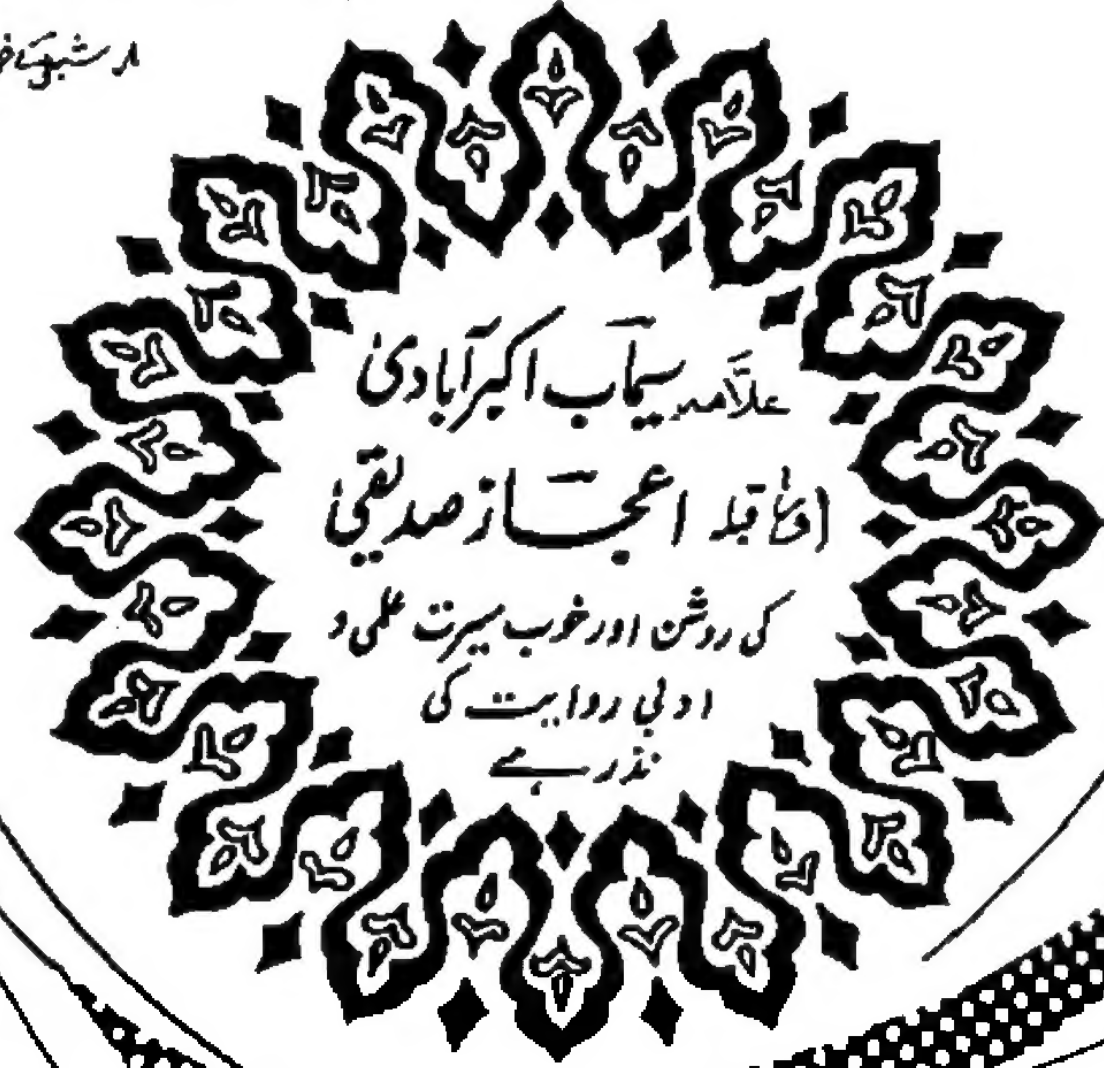 علّامہ سیماب اکبرآبادی
قبلہ اعجاز صدیقی
کی روشن اور خوب سیرت علمی و
ادبی روایت کی
نذر ہے